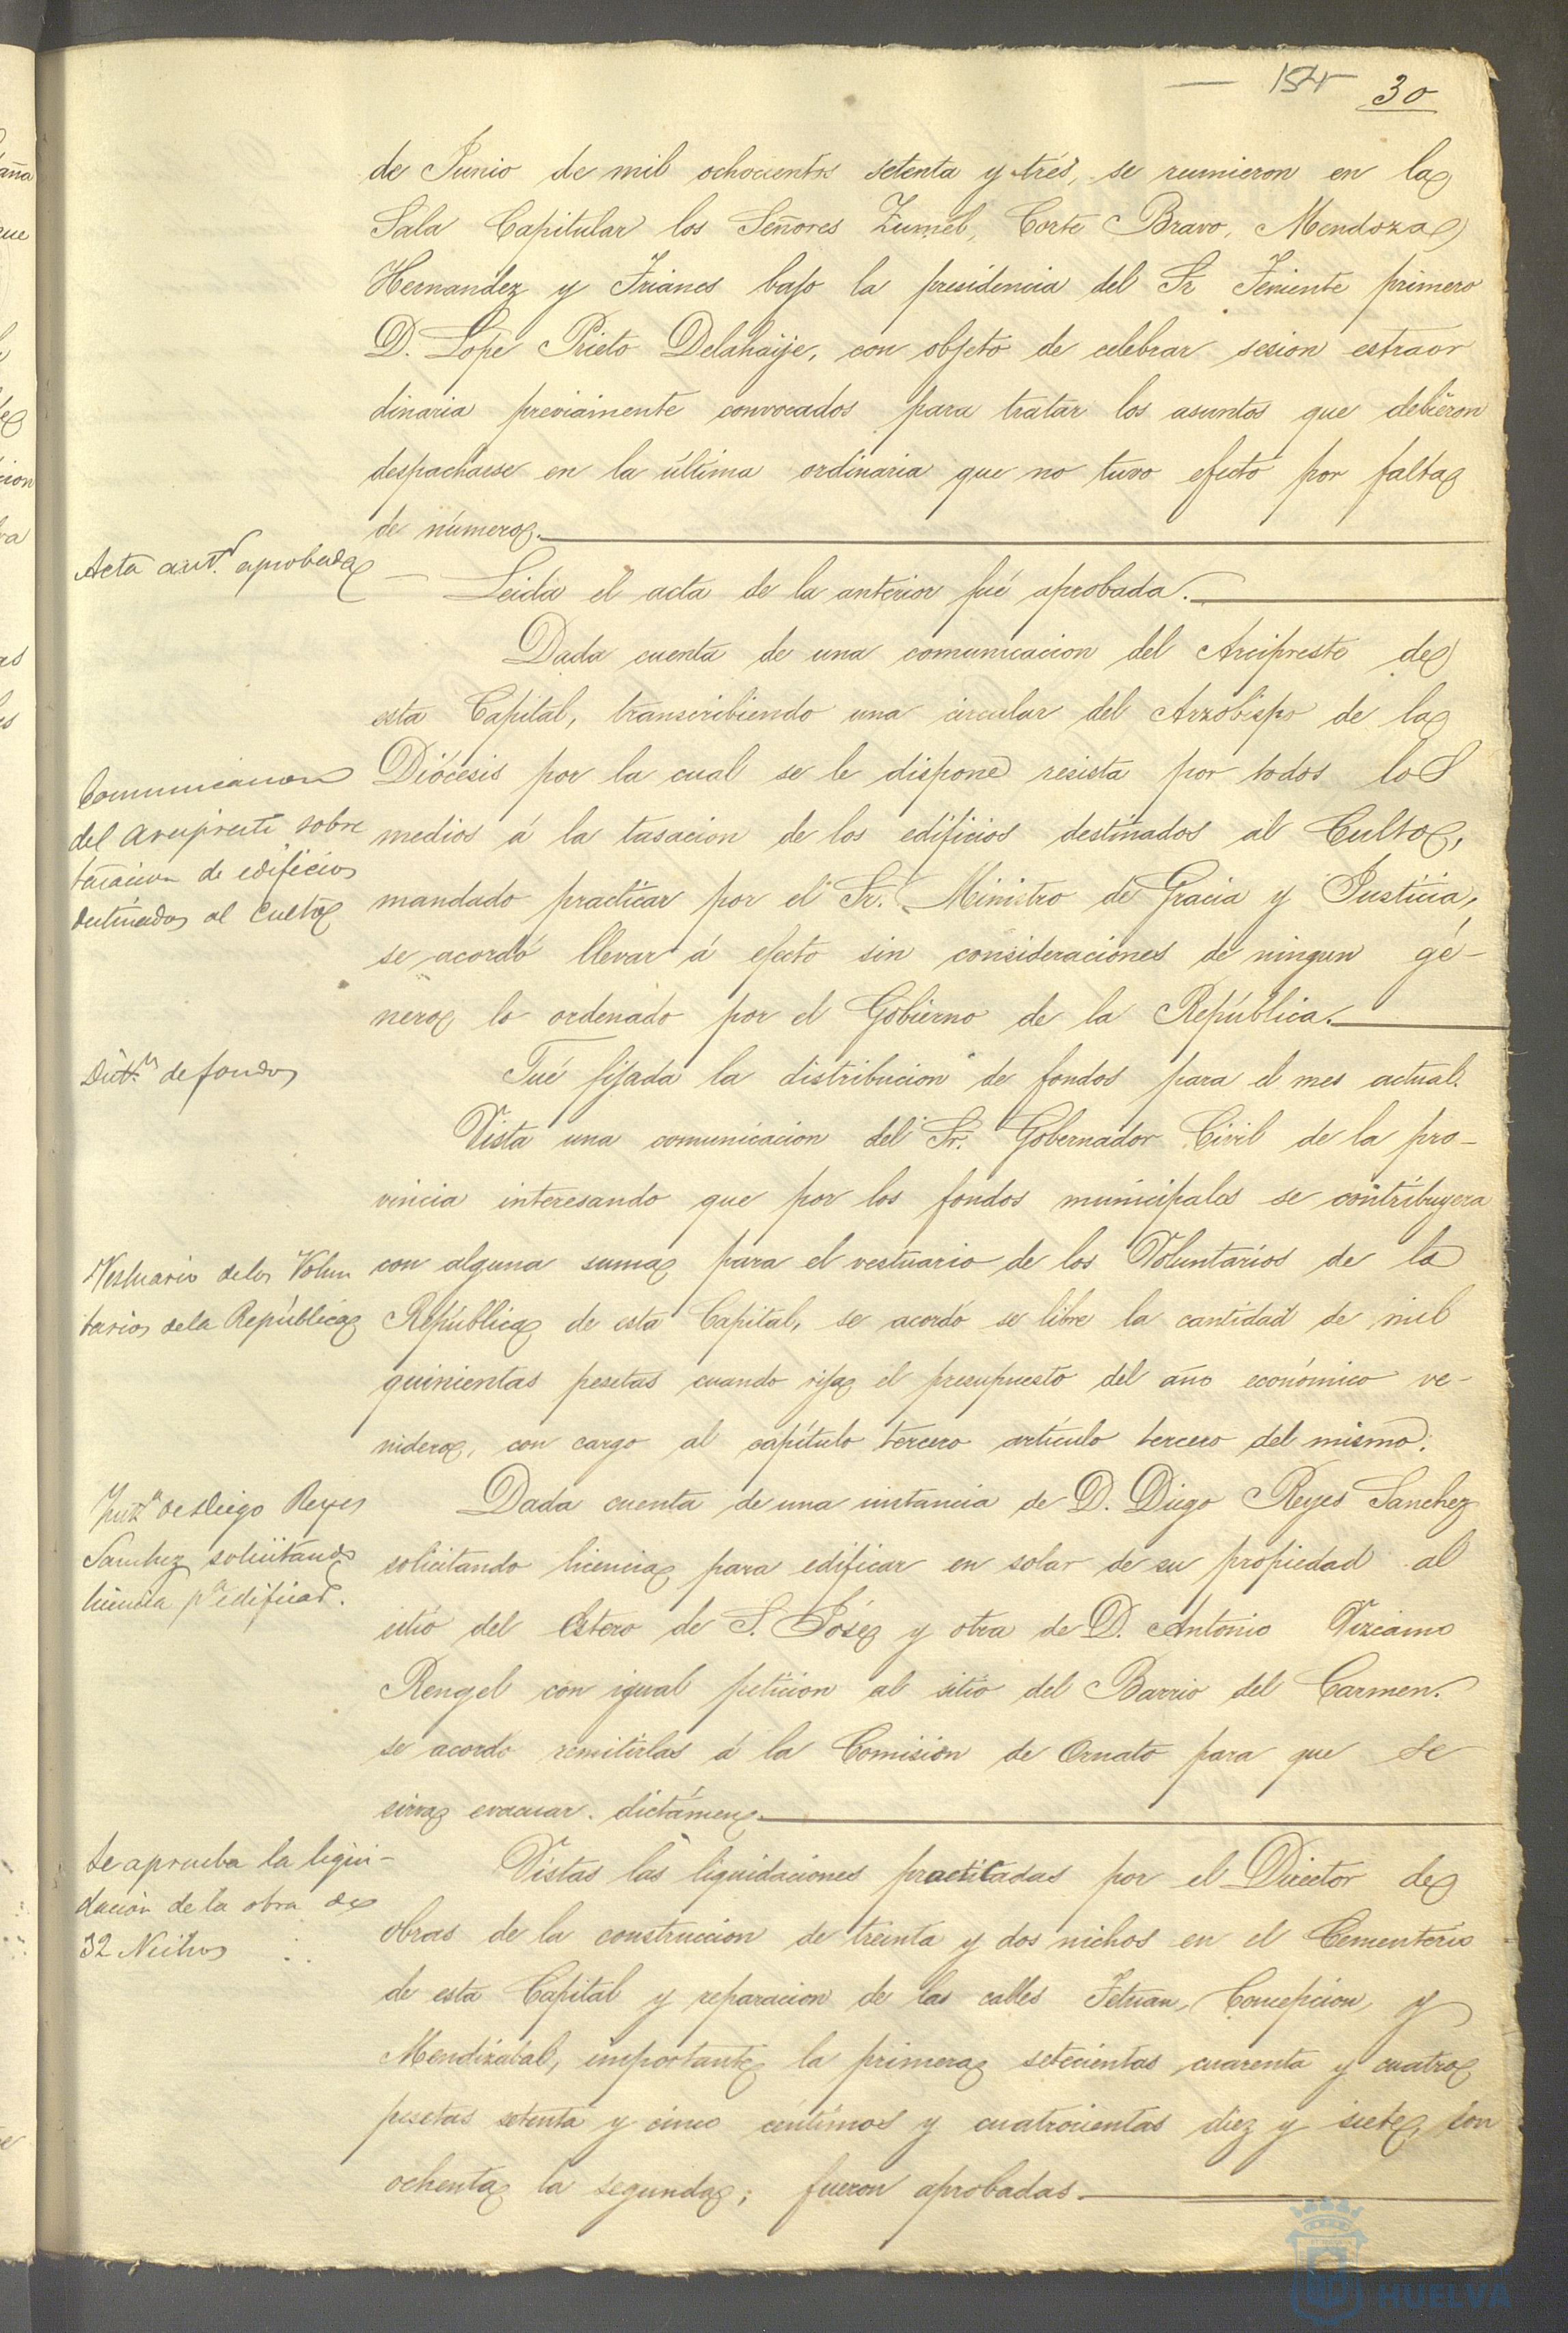 30
de Junio de mil ochocientos setenta y tres, se reunieron en la
Sala Capitular los Señores Zumel, Corte Bravo, Mendoza
Hernandez y Trianes bajo la presidencia del Sr Teniente primero
D. Lope Prieto Delahaije, con objeto de celebrar sesion estraor
dinaria previamente convocados para tratar los asuntos que debieron
despacharse en la última ordinaria que no tuvo efecto por falta
de número.
Acta antr. aprobada
Leida el acta de la anterior fué aprobada.
Dada cuenta de una comunicacion del Arcipreste de
esta Capital, transcribiendo una circular del Arzobispo de la
Diócesis por la cual se le dispone resista por todos los
medios á la tasacion de los edificios destinados al Culto,
mandado practicar por el Sr. Ministro de Gracia y Justicia,
se acordó llevar á efecto sin consideraciones de ningun gé-
nero lo ordenado por el Gobierno de la República.
Comunicacion
del Arcipreste sobre
tasacion de edificios
destinados al Culto
Distn de fondos
Fué fijada la distribucion de fondos para el mes actual.
Vista una comunicacion del Sr. Gobernador Civil de la pro-
vincia interesando que por los fondos municipales se contribuyera
con alguna suma para el vestuario de los Voluntarios de la
República de esta Capital, se acordó se libre la cantidad de mil
quinientas pesetas cuando rija el presupuesto del año económico ve-
nidero, con cargo al capítulo tercero artículo tercero del mismo.
Vestuario de los Volun
tarios de la República
Dada cuenta de una instancia de D. Diego Reyes Sanchez
solicitando licencia para edificar en solar de su propiedad al
sitio del Estero de S. José y otra de D. Antonio Vizcaino
Rengel con igual peticion al sitio del Barrio del Carmen.
se acordó remitirlas á la Comision de Ornato para que se
sirva evacuar dictámen.
de Diego Reyes
Sanchez solicitando
licencia pa edificar.
Vistas las liquidaciones practicadas por el Director de
obras de la construccion de treinta y dos nichos en el Cementerio
de esta Capital y reparacion de las calles Tetuan, Concepcion y
Mendizabal, importante la primera setecientas cuarenta y cuatro
pesetas setenta y cinco centimos y cuatrocientas diez y siete, con
ochenta la segunda; fueron aprobadas.
Se aprueba la liqui-
dacion de la obra de
32 Nichos
HUELVA